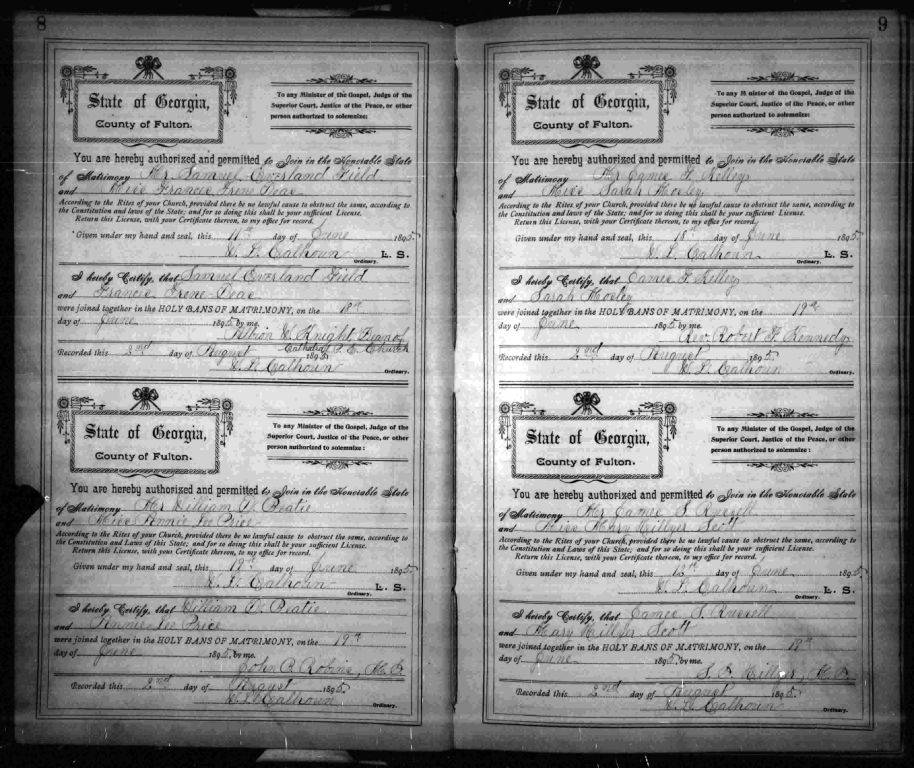 8
State of Georgia,
County of Fulton.
To any Minister of the Gospel, Judge of the
Superior Court, Justice of the Peace, or other
person authorized to solemnize:
You are hereby authorized and permitted to Join in the Honorable State
of Matrimony Mr Samuel Overland Field
and Miss Francis Irene
According to the Rites of your Church, provided there be no lawful cause to obstruct the same, according to
the Constitution and laws of the State; and for so doing this shall be your sufficient License.
Return this License, with your Certificate thereon, to my office for record.
Given under my hand and seal, this 11th day of June 1895
W. L. Calhoun L. S.
Ordinary.
I hereby Certify, that Samuel Overland Field
and Francis Irene
were joined together in the HOLY BANS OF MATRIMONY, on the 18th
day of June 1895 by me.
Albion W. Knight, Dean of
Cathedral P. E. Church
Recorded this 2nd day of August 1895
W. L. Calhoun
Ordinary.
State of Georgia,
County of Fulton.
To any Minister of the Gospel, Judge of the
Superior Court, Justice of the Peace, or other
person authorized to solemnize:
You are hereby authorized and permitted to Join in the Honorable State
of Matrimony Mr William D. Beatie
and Miss Annie Lee Price
According to the Rites of your Church, provided there be no lawful cause to obstruct the same, according to
the Constitution and Laws of this State; and for so doing this shall be your sufficient License.
Return this License, with your Certificate thereon, to my office for record.
Given under my hand and seal, this 19th day of June 1895
W. L. Calhoun L. S.
Ordinary.
I hereby Certify, that William D. Beatie
and Annie Lee Price
were joined together in the HOLY BANS OF MATRIMONY, on the 19th
day of June 1895, by me.
John B. Robins, M. G.
Recorded this 2nd day of August 1895
W. L. Calhoun
Ordinary.
9
State of Georgia,
County of Fulton.
To any Minister of the Gospel, Judge of the
Superior Court, Justice of the Peace, or other
person authorized to solemnize:
You are hereby authorized and permitted to Join in the Honorable State
of Matrimony Mr James F. Kelley
and Miss Sarah Mosley
According to the Rites of your Church, provided there be no lawful cause to obstruct the same, according to
the Constitution and Laws of this State; and for so doing this shall be your sufficient License.
Return this License, with your Certificate thereon, to my office for record.
Given under my hand and seal, this 18th day of June 1895
W. L. Calhoun L. S.
Ordinary.
I hereby Certify, that James F. Kelley
and Sarah Mosley
were joined together in the HOLY BANS OF MATRIMONY, on the 19th
day of June 1895 by me.
Rev. Robert F. Kennedy
Recorded this 2nd day of August 1895
W. L. Calhoun
Ordinary.
State of Georgia,
County of Fulton.
To any Minister of the Gospel, Judge of the
Superior Court, Justice of the Peace, or other
person authorized to solemnize:
You are hereby authorized and permitted to Join in the Honorable State
of Matrimony Mr James S. Russell
and Miss Mary Hillyer Scott
According to the Rites of your Church, provided there be no lawful cause to obstruct the same, according to
the Constitution and Laws of this State; and for so doing this shall be your sufficient License.
Return this License, with your Certificate thereon, to my office for record.
Given under my hand and seal, this 12th day of June 1895
W. L. Calhoun L. S.
Ordinary.
I hereby Certify, that James S. Russell
and Mary Hillyer Scott
were joined together in the HOLY BANS OF MATRIMONY, on the 19th
day of June 1895, by me.
Hillyer, M. G.
Recorded this 2nd day of August 1895
W. L. Calhoun
Ordinary.